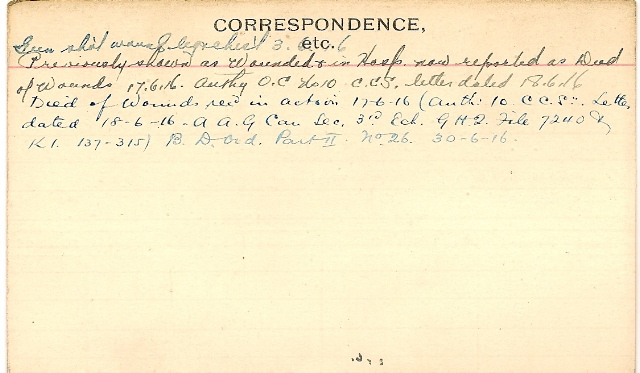 CORRESPONDENCE,
etc.
Gun shot wound chest 3. 6. 6
Previously shown as Wounded & in Hosp. now reported as Died
of Wounds 17.6.16. Authy O.C. No 10 C.C.S. letter dated 18.6.16
Died of Wounds rec'd in action 17-6-16 (Auth: 10. C.C.S:. Letter
dated 18-6-16 - A A. G Can Sec, 3rd Ech. G.H.Q. File 7240
K1. 137-315) B. D. Ord. Part II. No 26. 30-6-16.